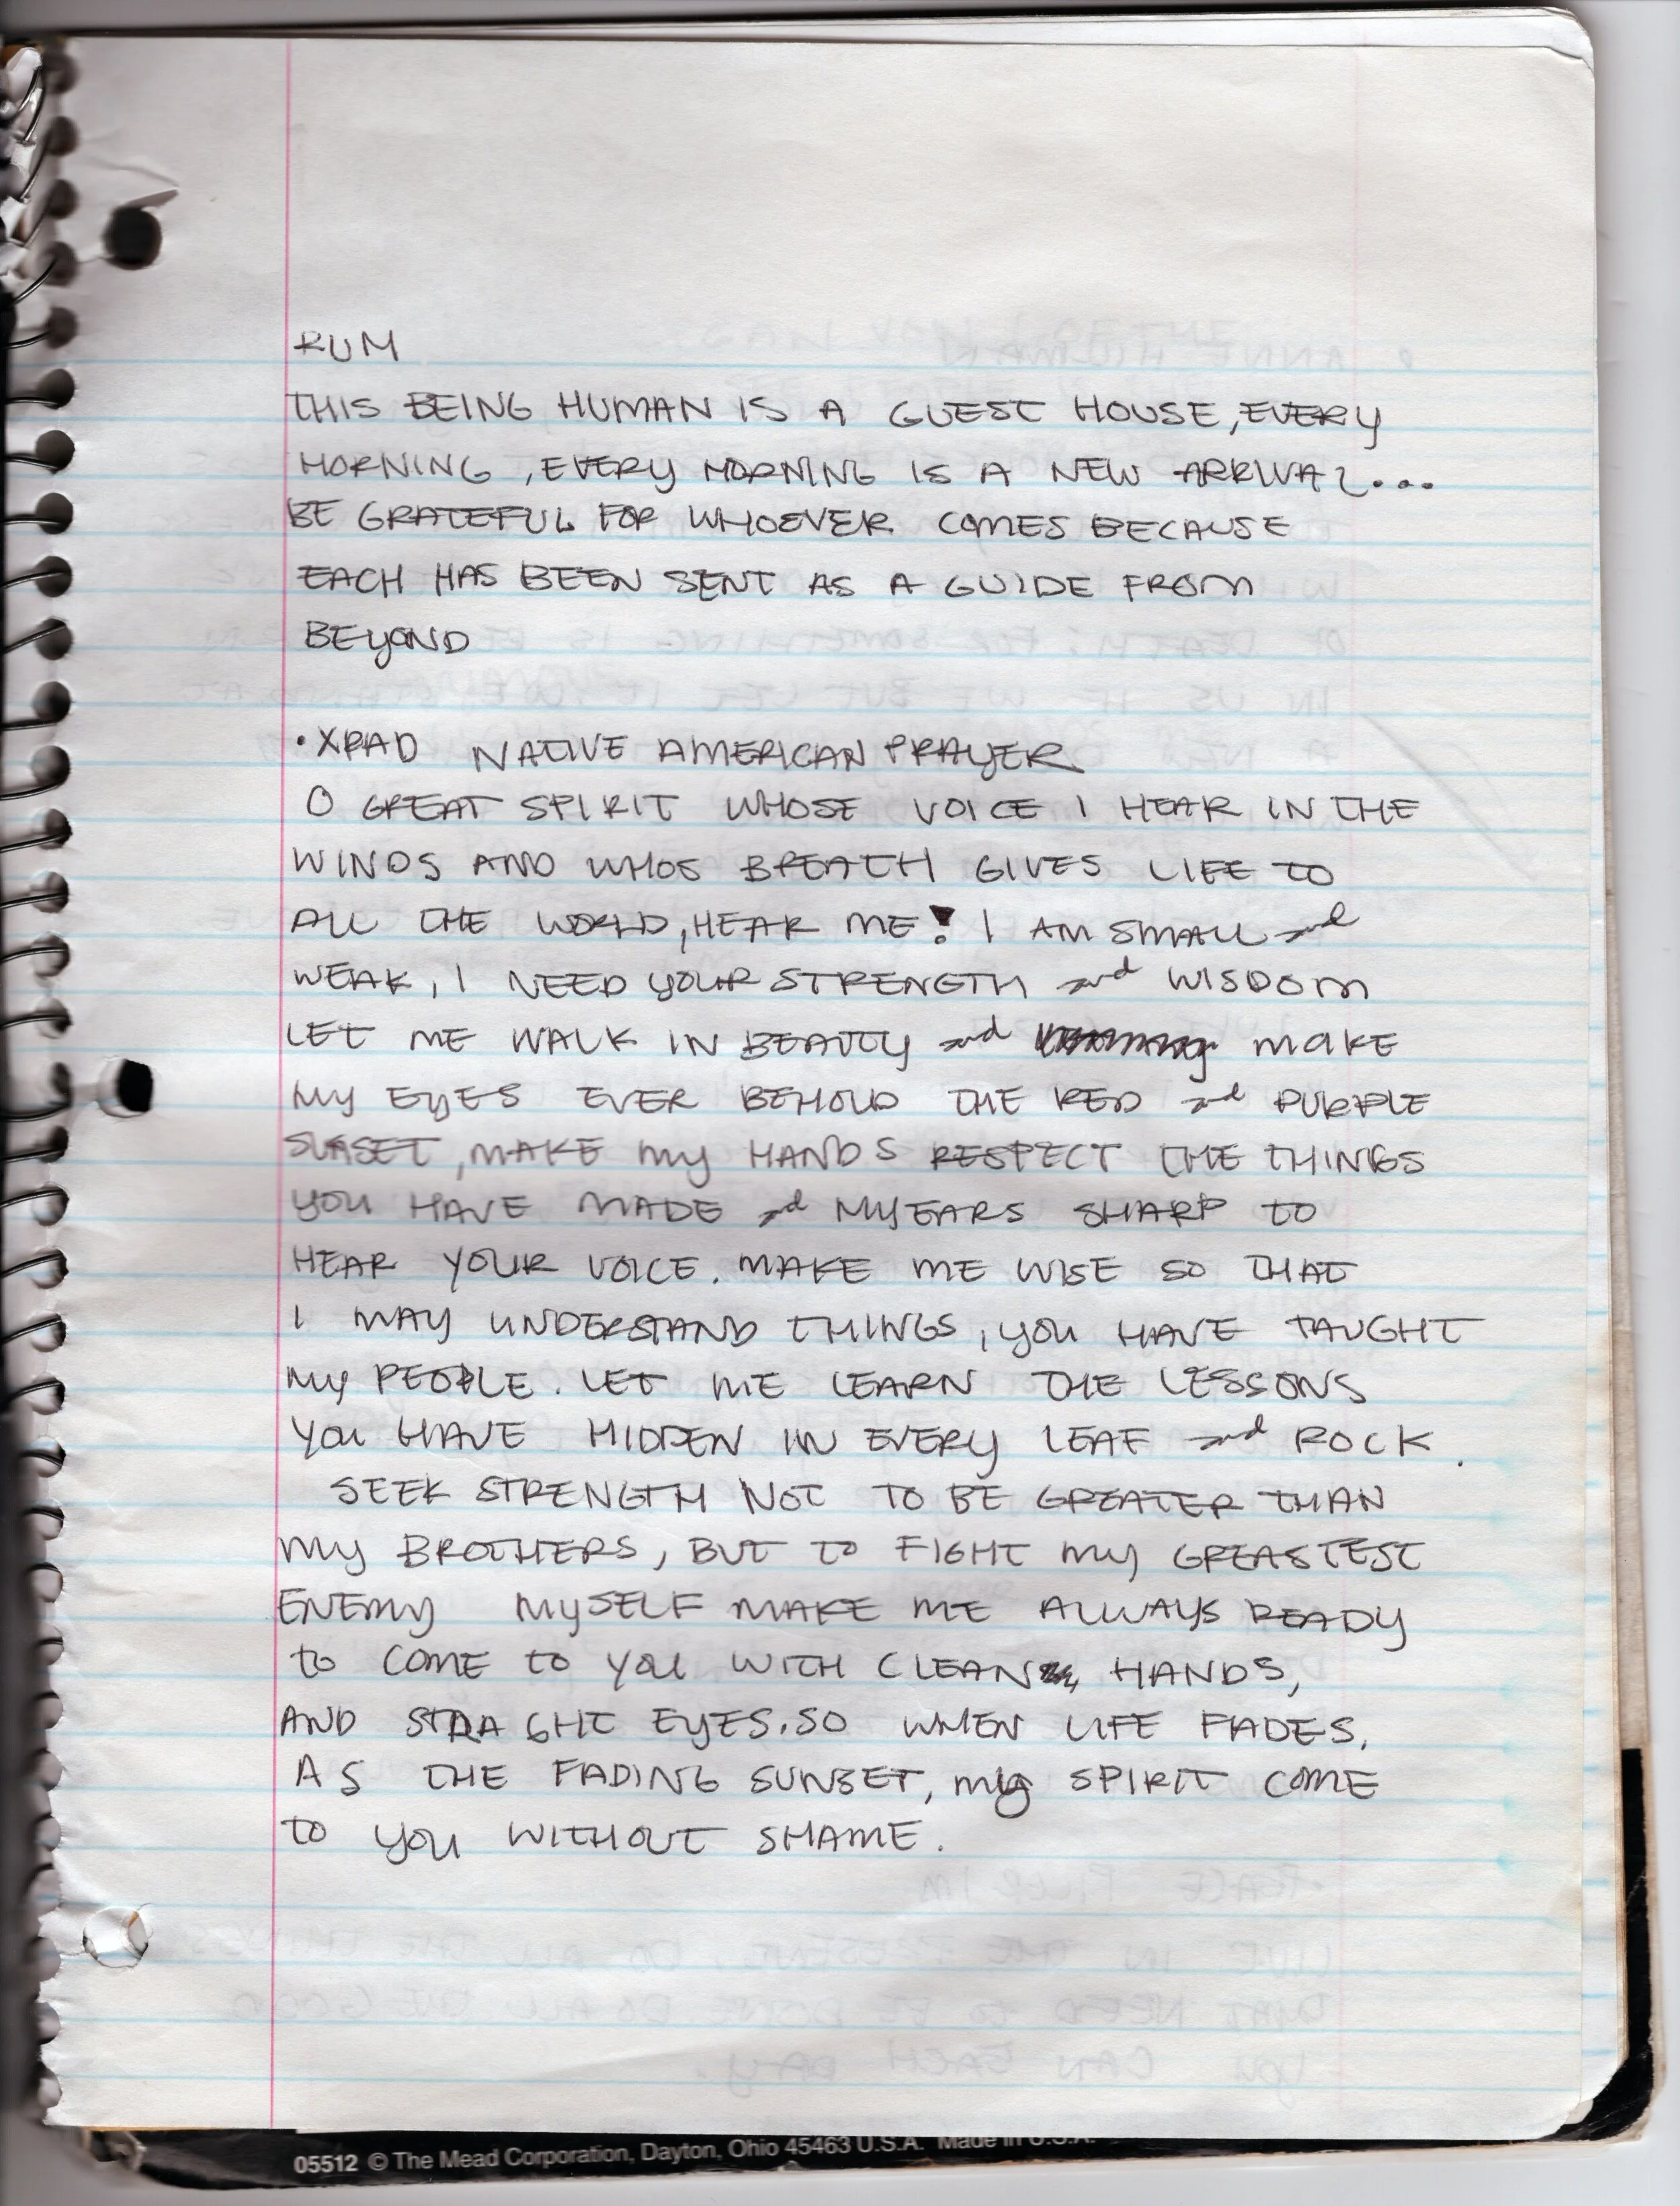 RUM
THIS BEING HUMAN IS A GUEST HOUSE, EVERY
MORNING, EVERY MORNING IS A NEW ARRIVAL...
BE GRATEFUL FOR WHOEVER COMES BECAUSE
EACH HAS BEEN SENT AS A GUIDE FROM
BEYOND
• XPAD NATIVE AMERICAN PRAYER
O GREAT SPIRIT WHOSE VOICE I HEAR IN THE
WINDS AND WHOS BREATH GIVES LIFE TO
ALL THE WORLD, HEAR ME! I AM SMALL and
WEAK, I NEED YOUR STRENGTH and WISDOM
LET ME WALK IN BEAUTY and MAKE
MY EYES EVER BEHOLD THE RED and PURPLE
SUNSET, MAKE MY HANDS RESPECT THE THINGS
YOU HAVE MADE and MY EARS SHARP TO
HEAR YOUR VOICE. MAKE ME WISE SO THAT
I MAY UNDERSTAND THINGS, YOU HAVE TAUGHT
MY PEOPLE. LET ME LEARN THE LESSONS
YOU HAVE HIDDEN IN EVERY LEAF and ROCK.
SEEK STRENGTH NOT TO BE GREATER THAN
MY BROTHERS, BUT TO FIGHT MY GREASTEST
ENEMY MYSELF MAKE ME ALWAYS READY
TO COME TO YOU WITH CLEAN HANDS,
AND STRAGHT EYES. SO WHEN LIFE FADES,
AS THE FADING SUNSET, MY SPIRIT COME
TO YOU WITHOUT SHAME.
05512 © The Mead Corporation, Dayton, Ohio 45463 U.S.A. Made in U.S.A.